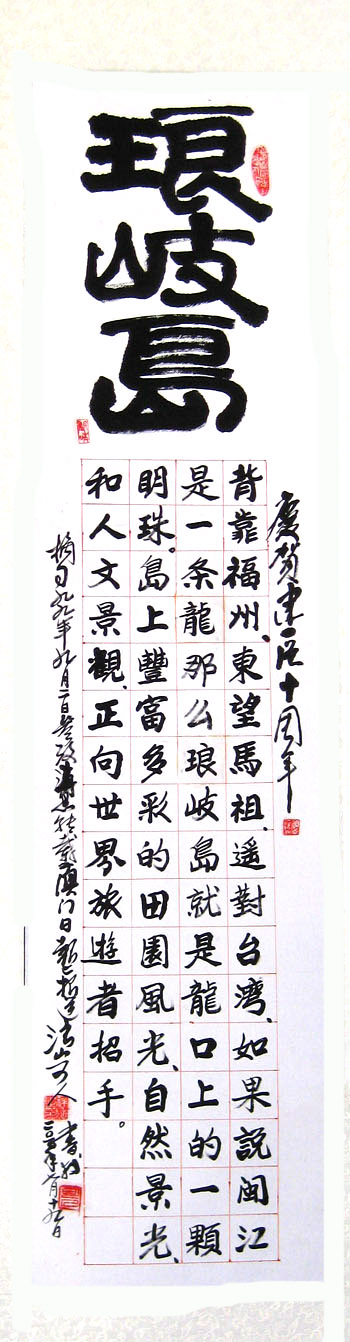 琅岐島
慶賀建區十周年
背靠福州、東望馬祖、遥對台灣、如果説閩江
是一条龍那么琅岐島就是龍口上的一顆
明珠。島上豐富多彩的田園風光、自然景光、
和人文景觀、正向世界旅遊者招手。